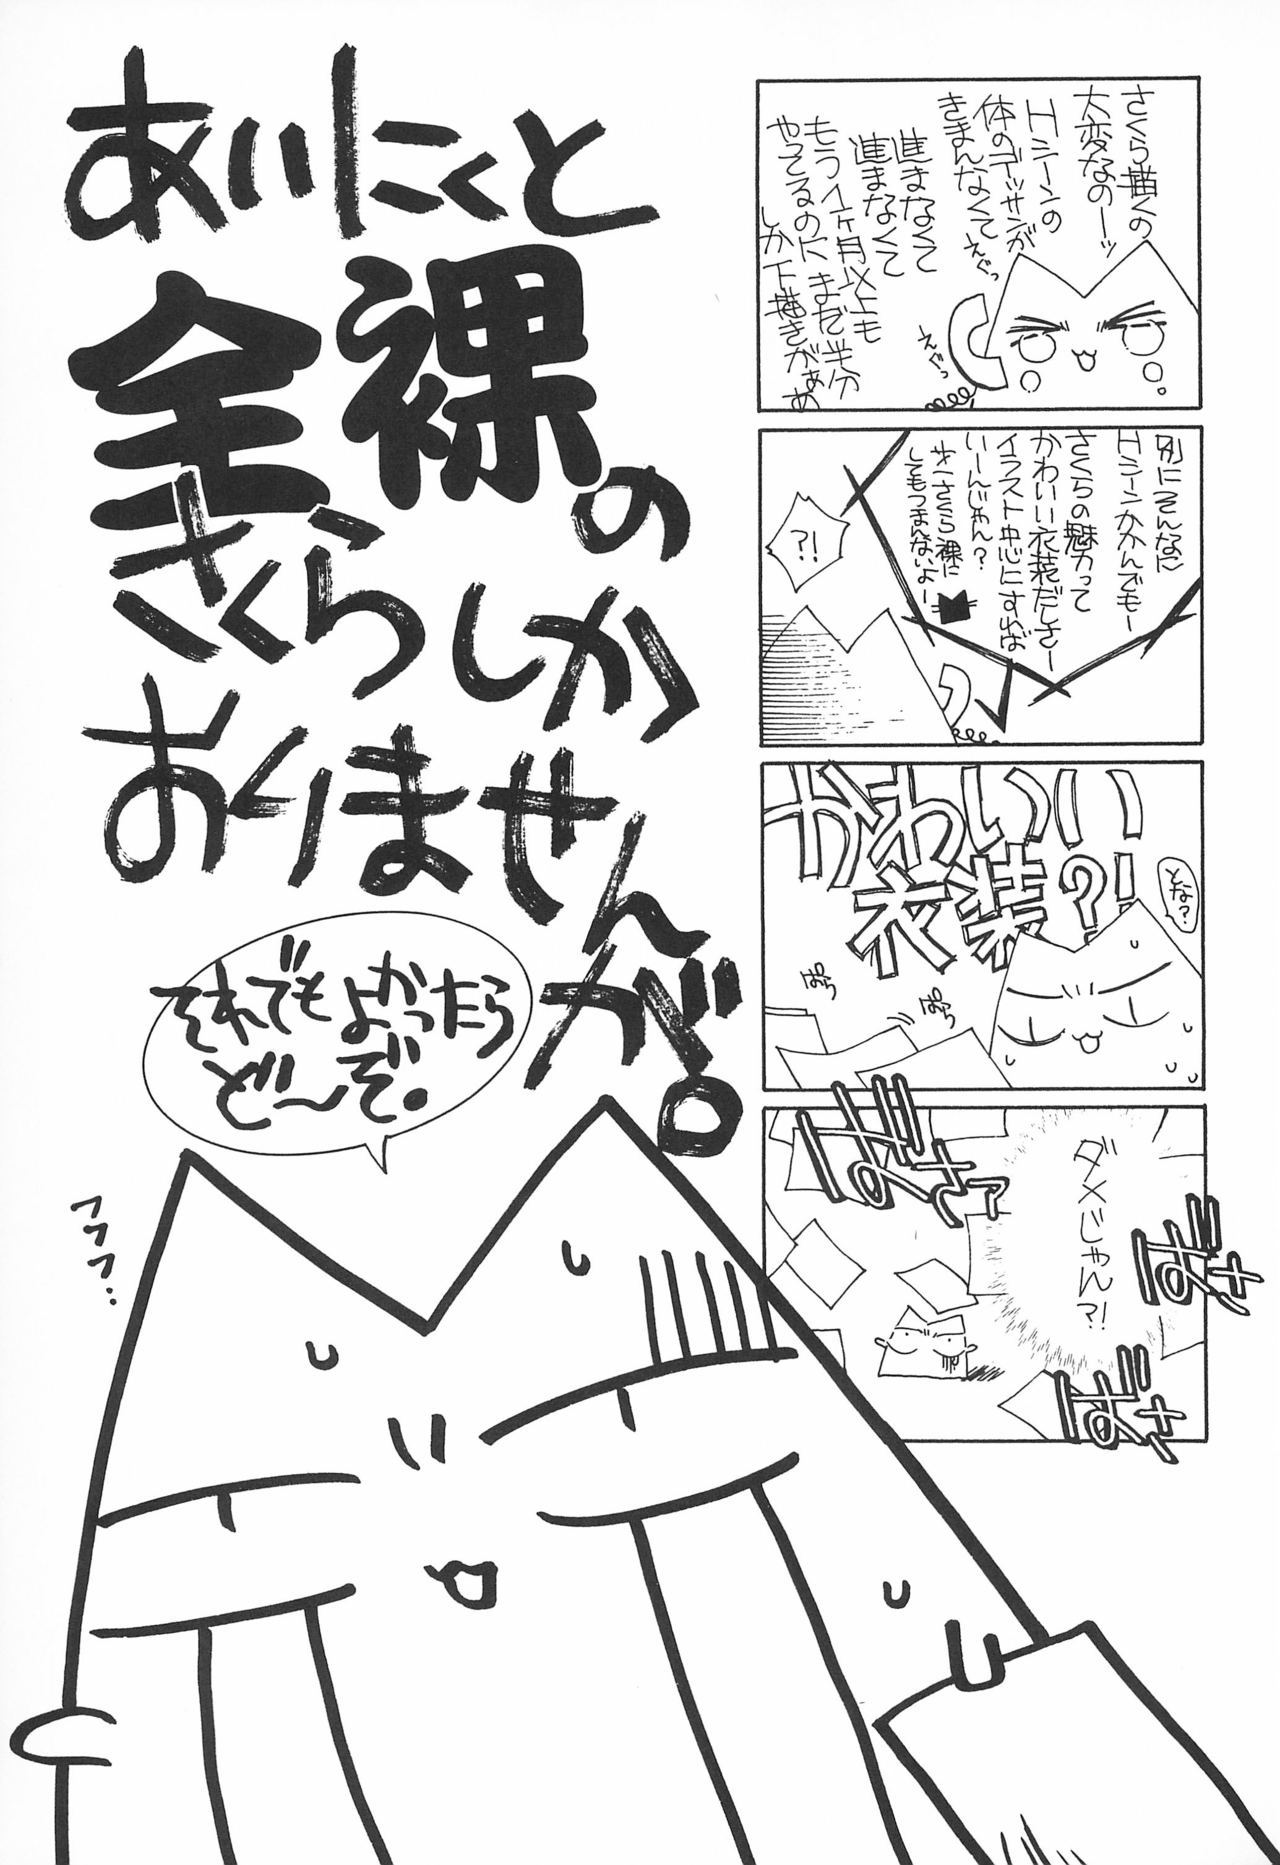 さくら描くの
大変なのーッ
Hシーンの
体のデッサンが
きまんなくて
進まなくて
進まなくて
もう1ヶ月以上も
やってるのにまだ半分
しか下描きがぁぁ
えぐっ
えぐっ
別にそんなに
Hシーンかかんでもー
さくらの魅力って
かわいい衣装だしさー
イラスト中心にすれば
いーんじゃん?
オールさくら裸に
してもつまんないよー
?!
かわいい
衣装?!
とな?
ぱらっ
ぱらっ
ダメじゃん?!
ばさ
ばさァ
ばさ
ばさ
あいにくと
全裸の
さくらしか
おりません
が。
それでもよかったら
ど〜ぞ。
フフフ…